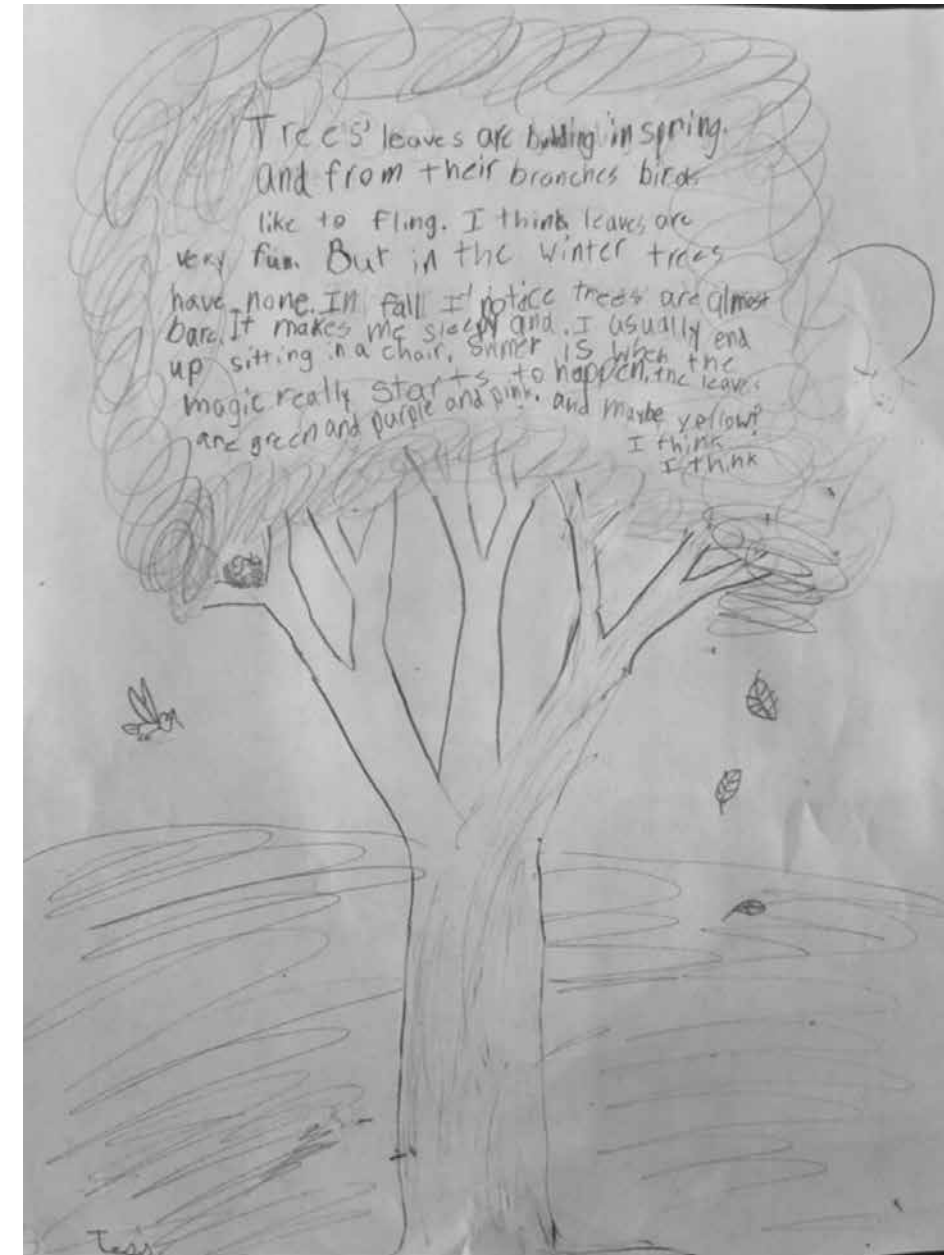 Trees' leaves are budding in spring.
and from their branches birds
like to fling. I think leaves are
very fun. But in the winter trees
have none. In fall I notice trees are almost
bare. It makes me sleepy and. I usually end
up sitting in a chair. Sumer is when the
magic really starts to happen. the leaves
are green and purple and pink. and maybe yellow?
I think
I think
Tess